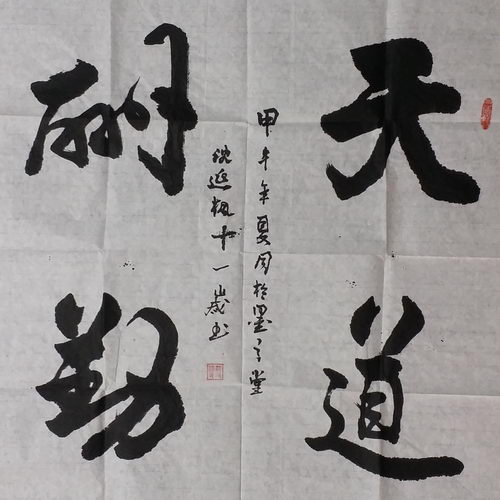 天道
酬勤
甲午年夏月於墨之堂
沈延楓十一歲書